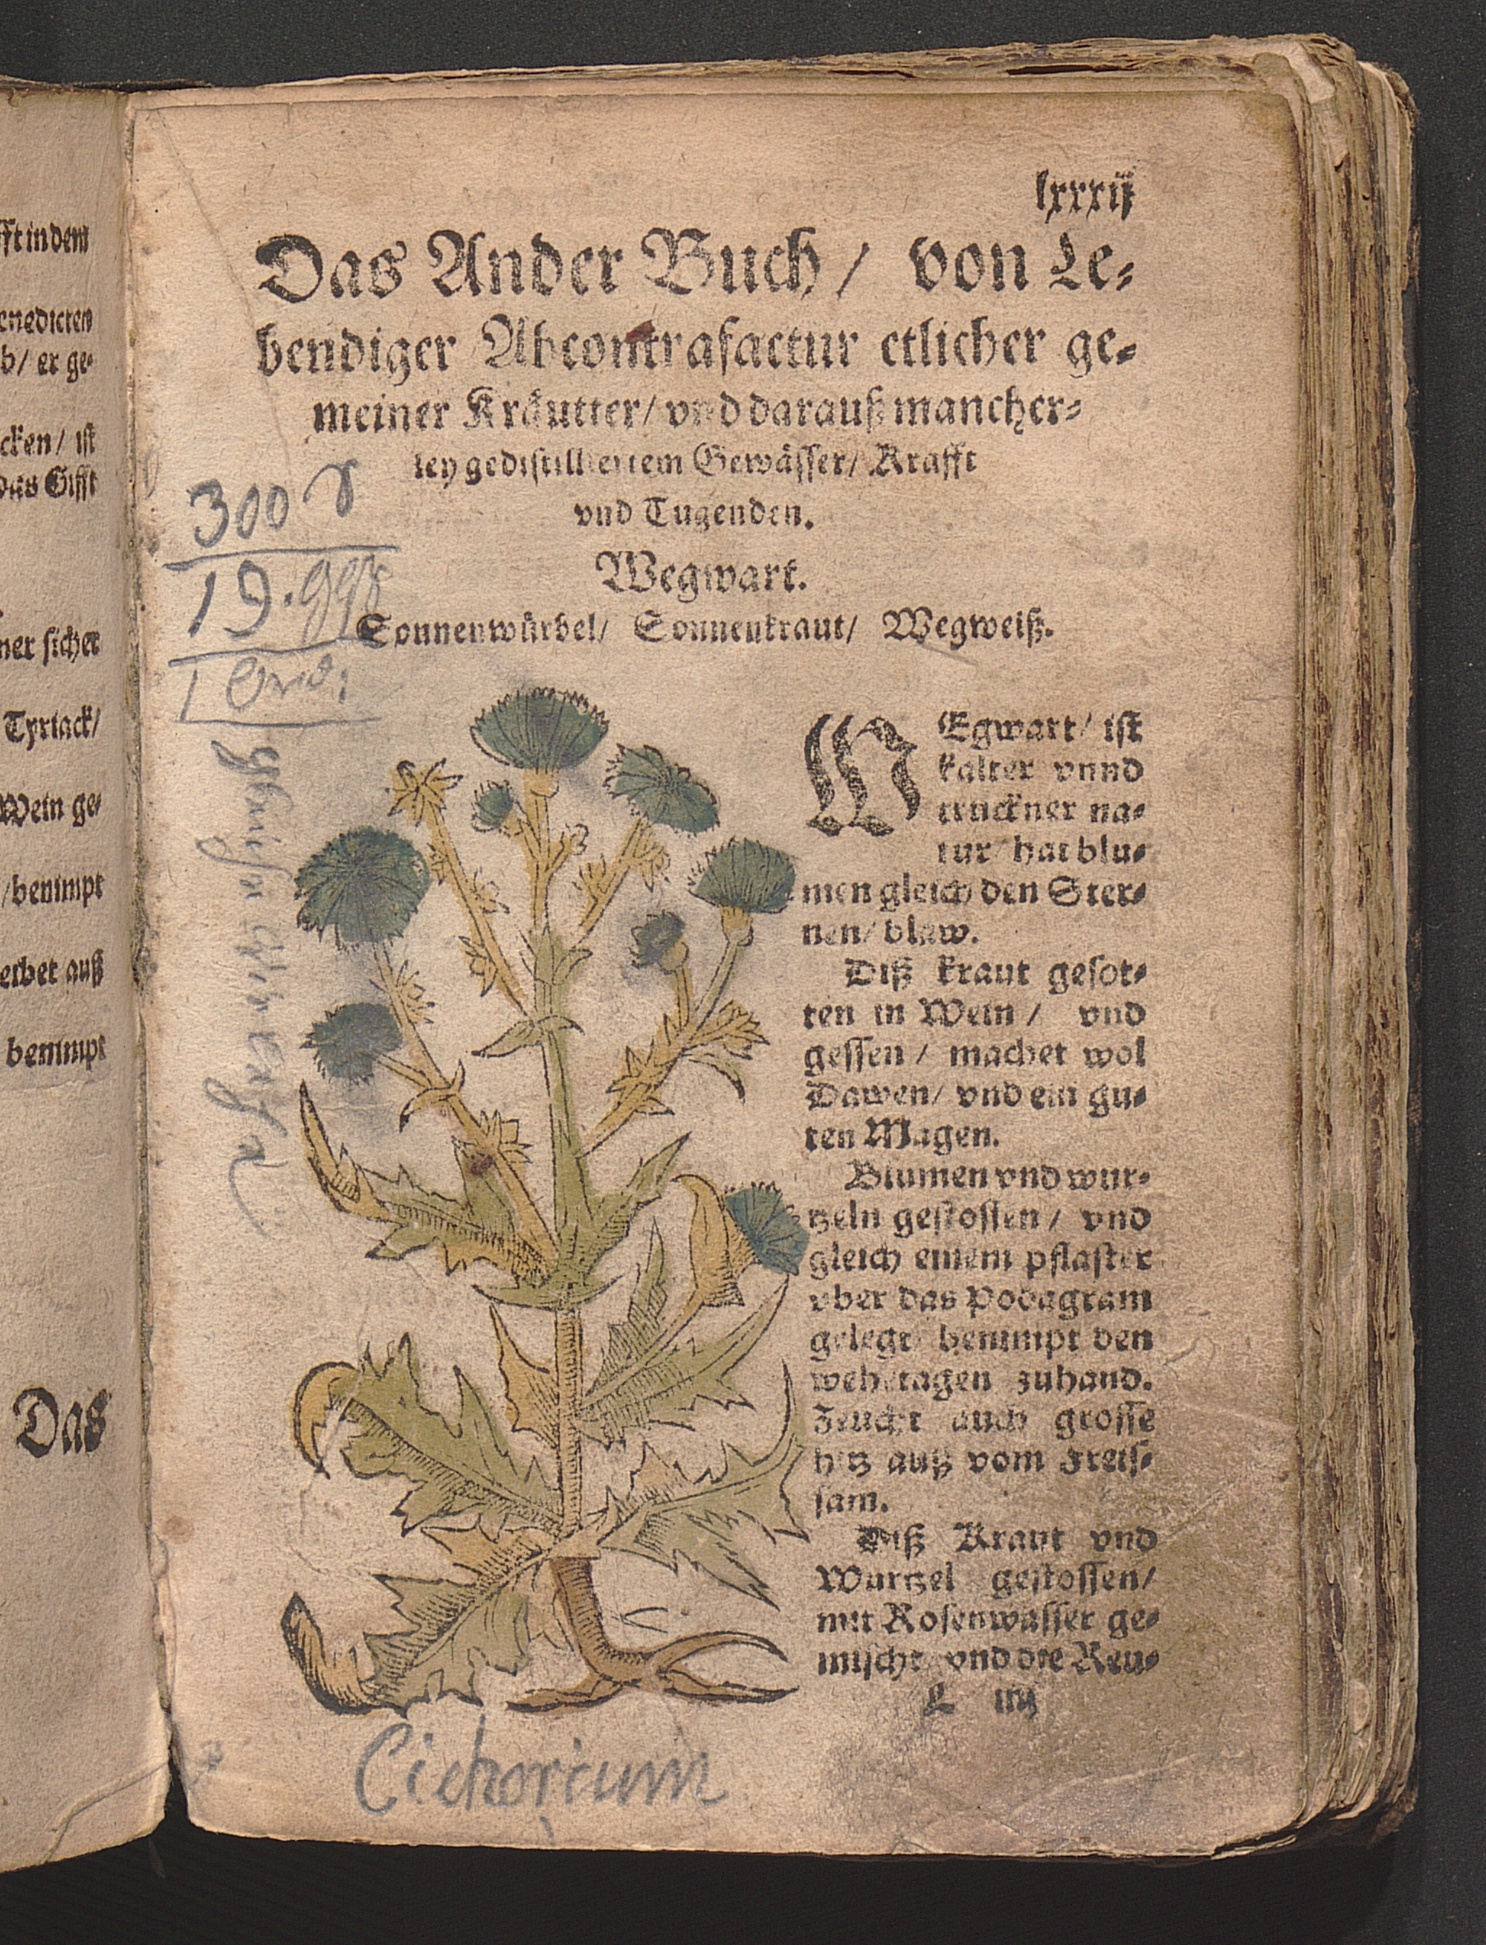 fft in dem
enedicten
b/ er ge⸗
cken/ ist
das Gifft
ner sicher
Tyriack/
Wein ge⸗
/benimpt
erbet auß
benimpt
Das
lxxxiij
Das Ander Buch/ von Le⸗
bendiger Abcontrafactur etlicher ge⸗
meiner Kräutter/ vnd darauß mancher⸗
ley gedistilliertem Gewässer/ Krafft
vnd Tugenden.
Wegwart.
Sonnenwürbel/ Sonnenkraut/ Wegweiß.
300
19.
1
WEgwart/ ist
kalter vnnd
truckner na⸗
tur/ hat blu⸗
men gleich den Ster⸗
nen/ blaw.
Diß kraut gesot⸗
ten in Wein/ vnd
gessen/ machet wol
Dawen/ vnd ein gu⸗
ten Magen.
Blumen vnd wur⸗
tzeln gestossen/ vnd
gleich einem pflaster
vber das Podagram
gelegt/ benimpt den
wehetagen zuhand.
Zeucht auch grosse
hitz auß vom Freis⸗
sam.
Diß Kraut vnd
Wurtzel gestossen/
mit Rosenwasser ge⸗
mischt/ vnd die Reu⸗
L iij
Cichorium